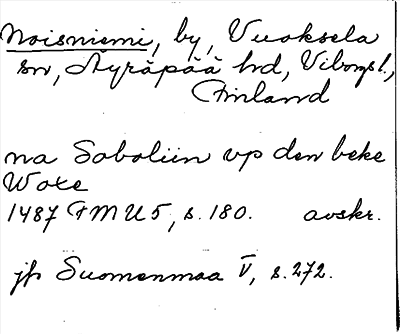 Noisniemi, by, Vuoksela
sn, Äyräpää hd, Viborgsl.,
Finland
na Soboliin vp den beke
Woxe
1487 FMU 5, s. 180. avskr.
jfr Suomenmaa V, s. 272.